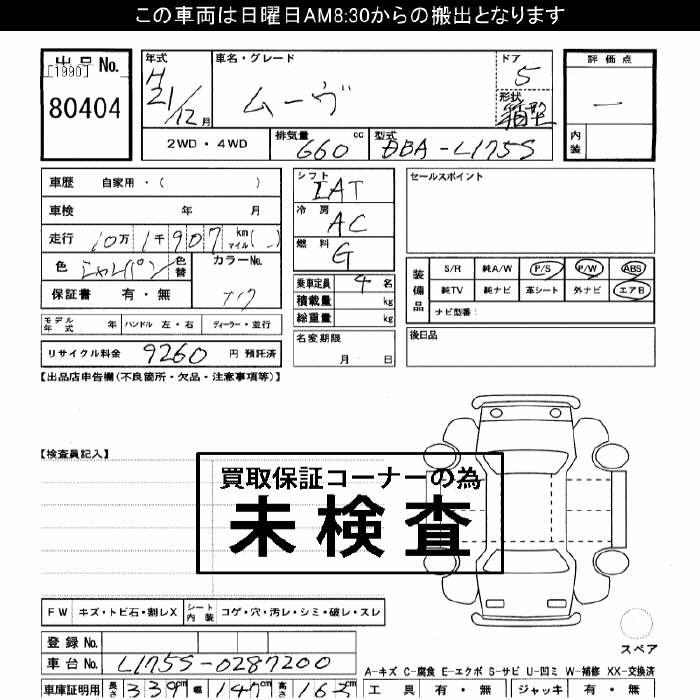 この車両は日曜日AM8:30からの搬出となります
出品No.
[1990]
80404
年式
H
21/12月
車名・グレード
ムーヴ
ドア
5
形状
箱型
2WD・4WD
排気量 cc
660
型式
DBA-L175S
評価点
―
内装
車歴 自家用・( )
車検 年 月
走行 10万1千907 km マイル( )
色 シャンパン 色替
カラーNo.
T17
保証書 有・無
モデル年式 年 ハンドル 左・右 ディーラー・並行
リサイクル料金 9260 円 預託済
シフト
IAT
冷房
AC
燃料
G
乗車定員 4 名
積載量 kg
総重量 kg
名変期限
月 日
セールスポイント
装備品
S/R 純A/W P/S P/W ABS
純TV 純ナビ 革シート 外ナビ エアB
ナビ型番:
後日品
【出品店申告欄(不良箇所・欠品・注意事項等)】
【検査員記入】
買取保証コーナーの為
未検査
FW キズ・トビ石・割レX シート内装 コゲ・穴・汚レ・シミ・破レ・スレ
登録No.
車台No. L175S-0287200
車庫証明用 長さ 339cm 幅 147cm 高さ 163cm
スペア
A-キズ C-腐食 E-エクボ S-サビ U-凹ミ W-補修 XX-交換済
工具 有・無 ジャッキ 有・無